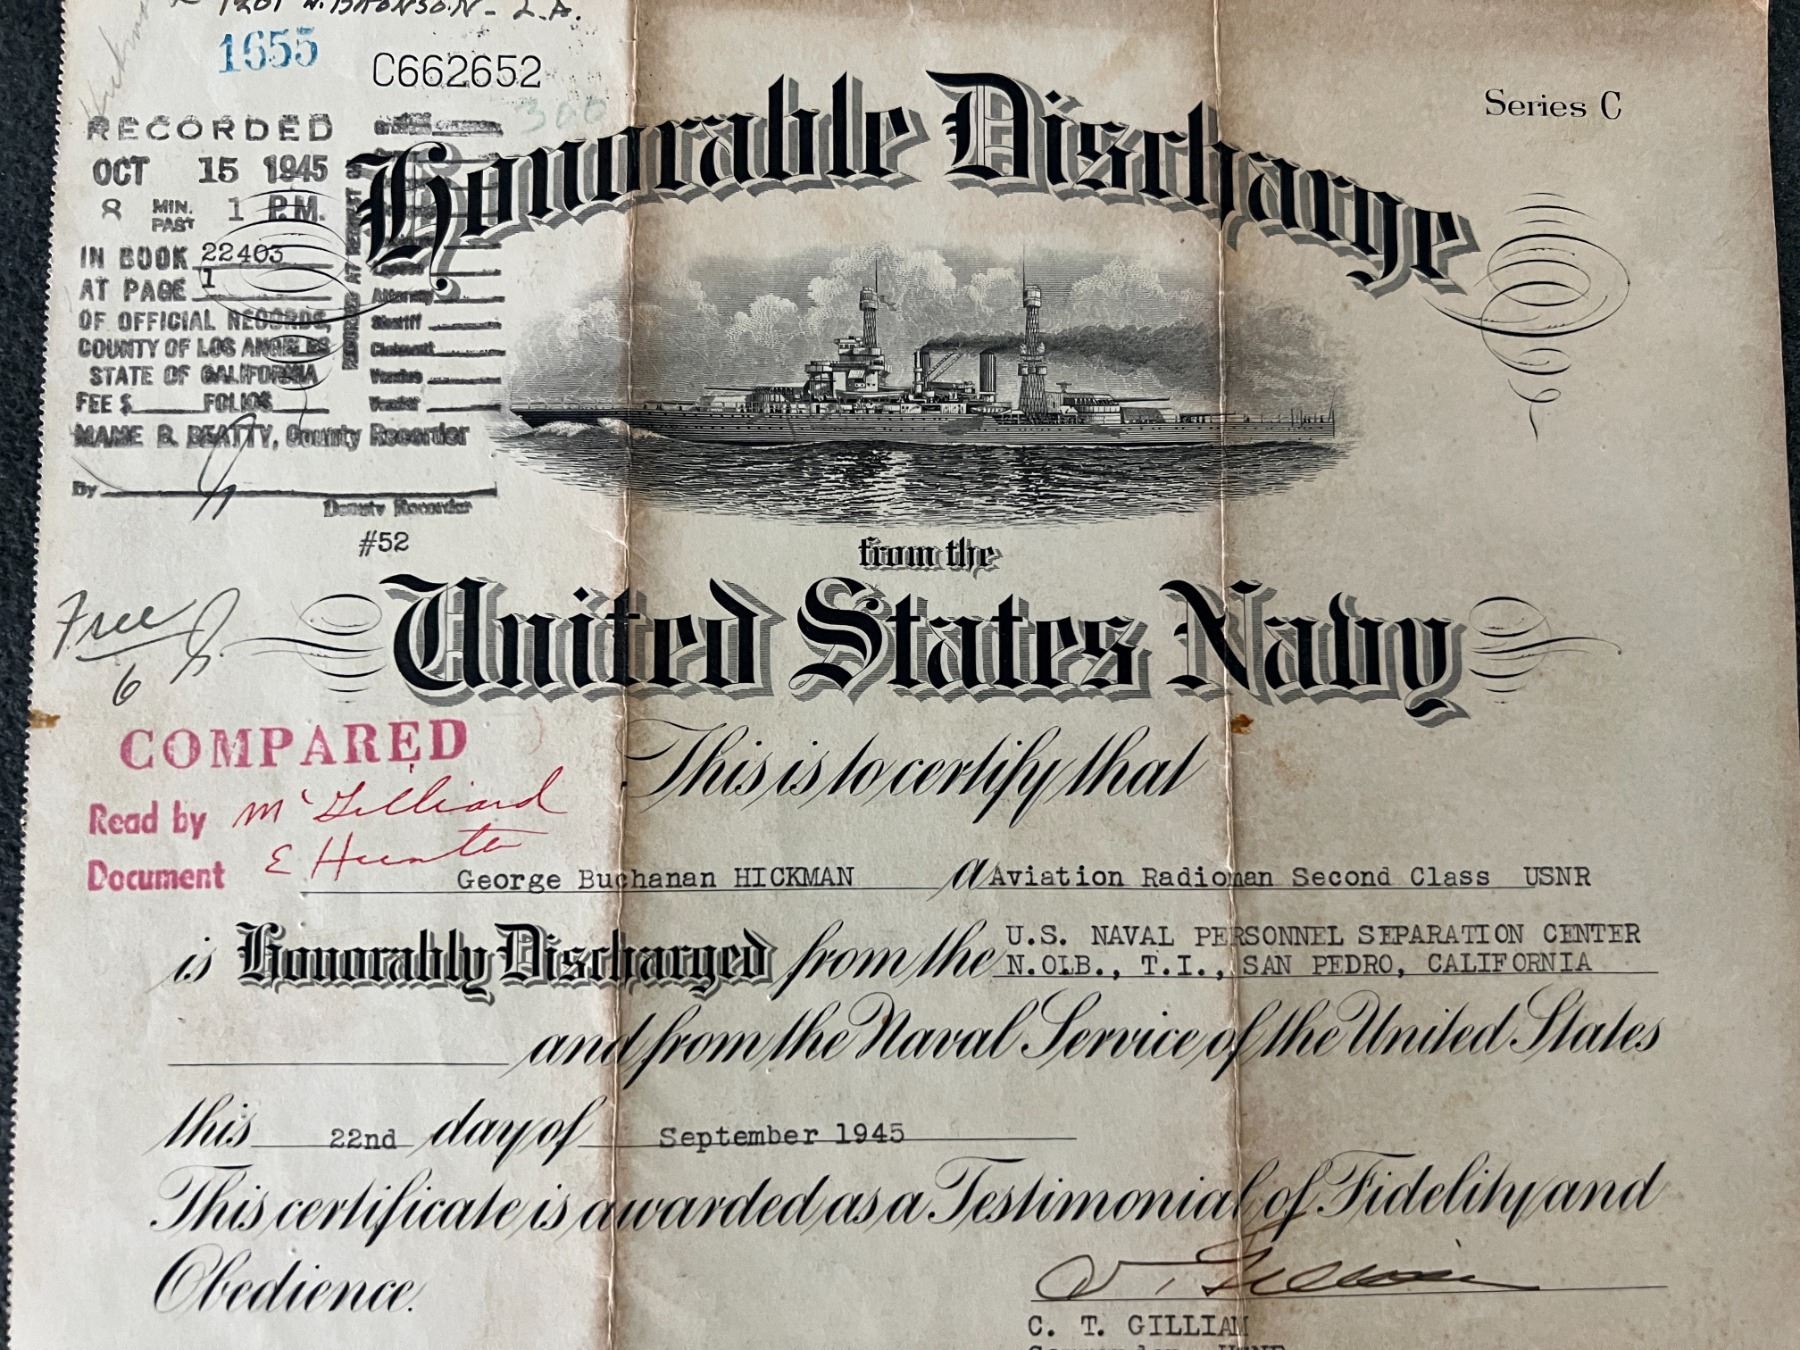 1201 N. BRONSON - L.A.
1655
C662652
300
Series C
RECORDED
OCT 15 1945
8 MIN. PAST 1 P.M.
IN BOOK 22403
AT PAGE 1
OF OFFICIAL RECORDS,
COUNTY OF LOS ANGELES
STATE OF CALIFORNIA
FEE $ FOLIOS
MAME B. BEATTY, County Recorder
By
Deputy Recorder
#52
RECORDED AT REQUEST OF
Attorney
Sheriff
Vendee
Vendor
Honorable Discharge
from the
United States Navy
Free
6
COMPARED
Read by McGilliard
Document E Hunter
This is to certify that
George Buchanan HICKMAN a Aviation Radioman Second Class USNR
is Honorably Discharged from the U.S. NAVAL PERSONNEL SEPARATION CENTER
N.OLB., T.I., SAN PEDRO, CALIFORNIA
and from the Naval Service of the United States
this 22nd day of September 1945
This certificate is awarded as a Testimonial of Fidelity and
Obedience.
C. T. GILLIAM